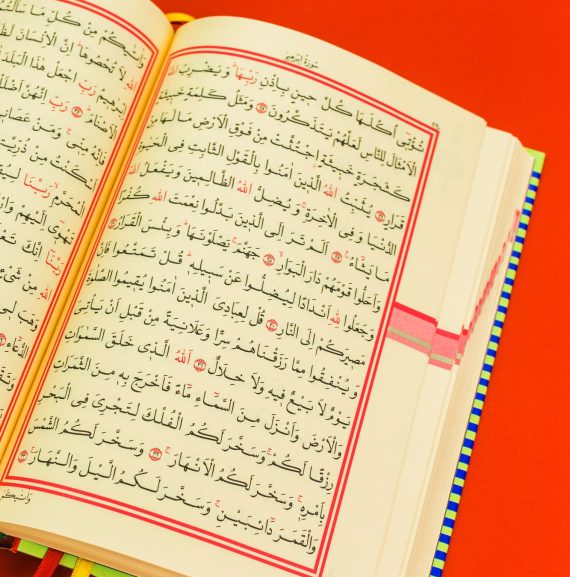 سُورَةُ اِبْرٰهٖيمَ
تُؤْتٖٓي اُكُلَهَا كُلَّ حٖينٍ بِاِذْنِ رَبِّهَاۜ وَيَضْرِبُ اللّٰهُ
الْاَمْثَالَ لِلنَّاسِ لَعَلَّهُمْ يَتَذَكَّرُونَ ٢٥ وَمَثَلُ كَلِمَةٍ خَبٖيثَةٍ
كَشَجَرَةٍ خَبٖيثَةٍۨ اجْتُثَّتْ مِنْ فَوْقِ الْاَرْضِ مَا لَهَا مِنْ
قَرَارٍ ٢٦ يُثَبِّتُ اللّٰهُ الَّذٖينَ اٰمَنُوا بِالْقَوْلِ الثَّابِتِ فِي الْحَيٰوةِ
الدُّنْيَا وَفِي الْاٰخِرَةِۚ وَيُضِلُّ اللّٰهُ الظَّالِمٖينَ وَيَفْعَلُ اللّٰهُ
مَا يَشَٓاءُ ٢٧ اَلَمْ تَرَ اِلَى الَّذٖينَ بَدَّلُوا نِعْمَتَ اللّٰهِ كُفْرًا
وَاَحَلُّوا قَوْمَهُمْ دَارَ الْبَوَارِۙ ٢٨ جَهَنَّمَۚ يَصْلَوْنَهَاۜ وَبِئْسَ الْقَرَارُ ٢٩
وَجَعَلُوا لِلّٰهِ اَنْدَادًا لِيُضِلُّوا عَنْ سَبٖيلِهٖۜ قُلْ تَمَتَّعُوا فَاِنَّ
مَصٖيرَكُمْ اِلَى النَّارِ ٣٠ قُلْ لِعِبَادِيَ الَّذٖينَ اٰمَنُوا يُقٖيمُوا الصَّلٰوةَ
وَيُنْفِقُوا مِمَّا رَزَقْنَاهُمْ سِرًّا وَعَلَانِيَةً مِنْ قَبْلِ اَنْ يَأْتِيَ
يَوْمٌ لَا بَيْعٌ فٖيهِ وَلَا خِلَالٌ ٣١ اَللّٰهُ الَّذٖي خَلَقَ السَّمٰوَاتِ
وَالْاَرْضَ وَاَنْزَلَ مِنَ السَّمَٓاءِ مَٓاءً فَاَخْرَجَ بِهٖ مِنَ الثَّمَرَاتِ
رِزْقًا لَكُمْۚ وَسَخَّرَ لَكُمُ الْفُلْكَ لِتَجْرِيَ فِي الْبَحْرِ
بِاَمْرِهٖۚ وَسَخَّرَ لَكُمُ الْاَنْهَارَۚ ٣٢ وَسَخَّرَ لَكُمُ الشَّمْسَ
وَالْقَمَرَ دَٓائِبَيْنِۚ وَسَخَّرَ لَكُمُ الَّيْلَ وَالنَّهَارَۚ ٣٣
وَاٰتٰيكُمْ
وَاٰتٰيكُمْ مِنْ كُلِّ مَا سَاَلْتُمُوهُ
لَا تُحْصُوهَاۜ اِنَّ الْاِنْسَانَ
اِبْرٰهٖيمُ رَبِّ اجْعَلْ هٰذَا الْبَلَدَ
الْاَصْنَامَۜ رَبِّ اِنَّهُنَّ اَضْلَلْنَ
فَاِنَّهُ مِنّٖيۚ وَمَنْ عَصَانٖي
اَسْكَنْتُ مِنْ
الْمُحَرَّمِۙ رَبَّنَا
تَهْوٖٓي اِلَيْهِمْ
رَبَّنَٓا اِنَّكَ
اللّٰهِ مِنْ شَيْءٍ
وَهَبَ لٖي
الدُّعَٓاءِ